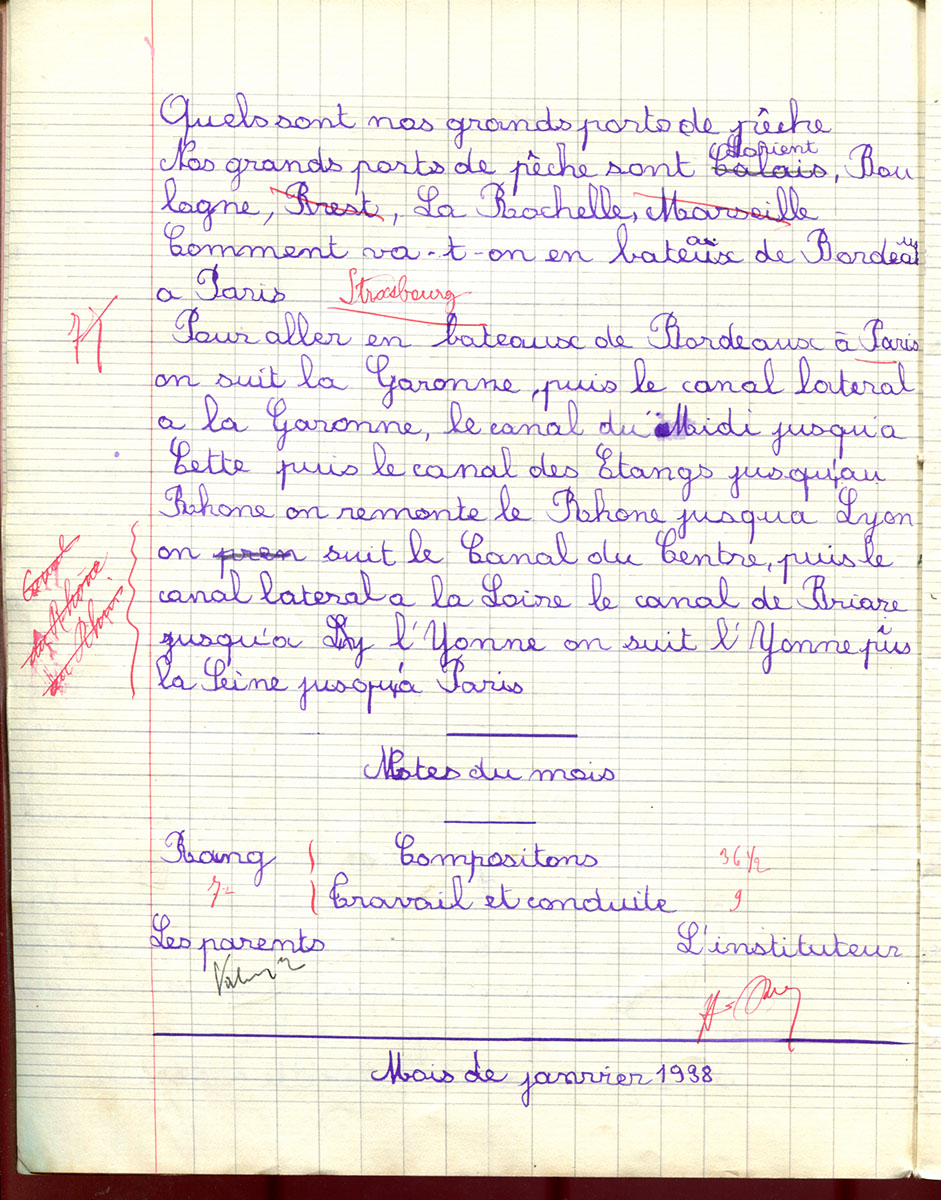 Quels sont nos grands ports de pêche
Lorient
Nos grands ports de pêche sont Calais, Bou
logne, Brest, La Rochelle, Marseille
Comment va-t-on en bateaux de Bordeaux
a Paris Strasbourg
7
Pour aller en bateaux de Bordeaux à Paris
on suit la Garonne, puis le canal lateral
a la Garonne, le canal du Midi jusqu'a
Cette puis le canal des Etangs jusqu'au
Rhone on remonte le Rhone jusqua Lyon
on pren suit le Canal du Centre, puis le
canal lateral a la Loire le canal de Briare
jusqu'a Ly l'Yonne on suit l'Yonne puis
la Seine jusqu'a Paris
Canal
du Rhône
au Rhin
Notes du mois
Rang Compositons 36 1/2
7 Travail et conduite 9
Les parents L'instituteur
Mois de janvier 1938